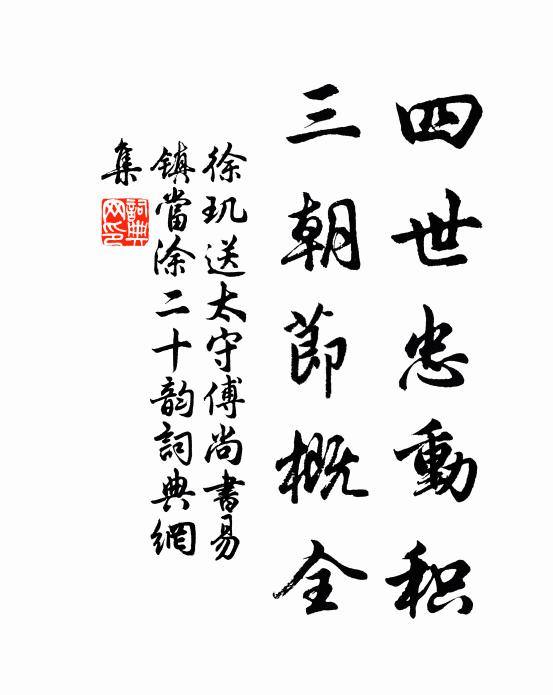 四世忠動积
三朝節概全
徐玑送太守傅尚書易
镇當涂二十韵詞典網
集
詞典網印